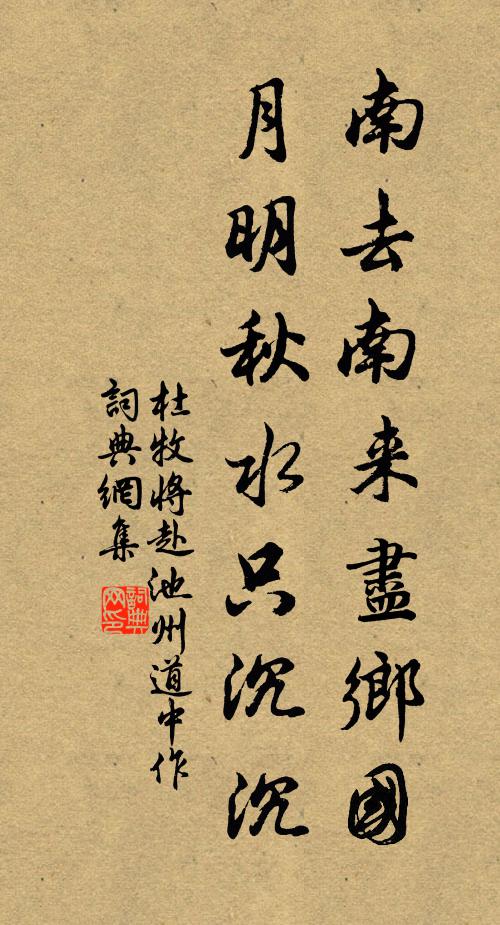 南去南来盡鄉國
月明秋水只沉沉
杜牧將赴池州道中作
詞典網集
詞典网印